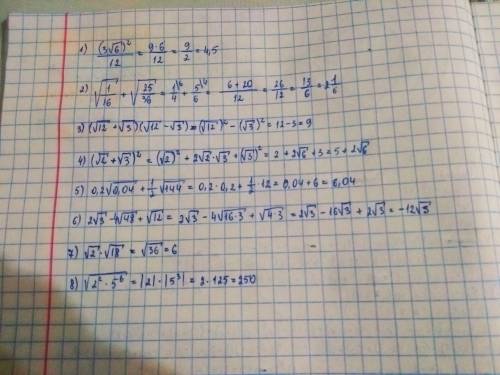 1) (3√6)²/12 = 9·6/12 = 9/2 = 4,5
2) √(1/16) + √(25/36) = 1/4 + 5/6 = (6+20)/12 = 26/12 = 13/6 = 2 1/6
3) (√12 + √3)(√12 - √3) = (√12)² - (√3)² = 12-3 = 9
4) (√2 + √3)² = (√2)² + 2√2·√3 + (√3)² = 2 + 2√6 + 3 = 5 + 2√6
5) 0,2√0,04 + 1/2 √144 = 0,2·0,2 + 1/2·12 = 0,04 + 6 = 6,04
6) 2√3 - 4√48 + √12 = 2√3 - 4√16·3 + √4·3 = 2√3 - 16√3 + 2√3 = -12√3
7) √2·√18 = √36 = 6
8) √(2²·5⁻⁶) = |2|·|5³| = 2·125 = 250